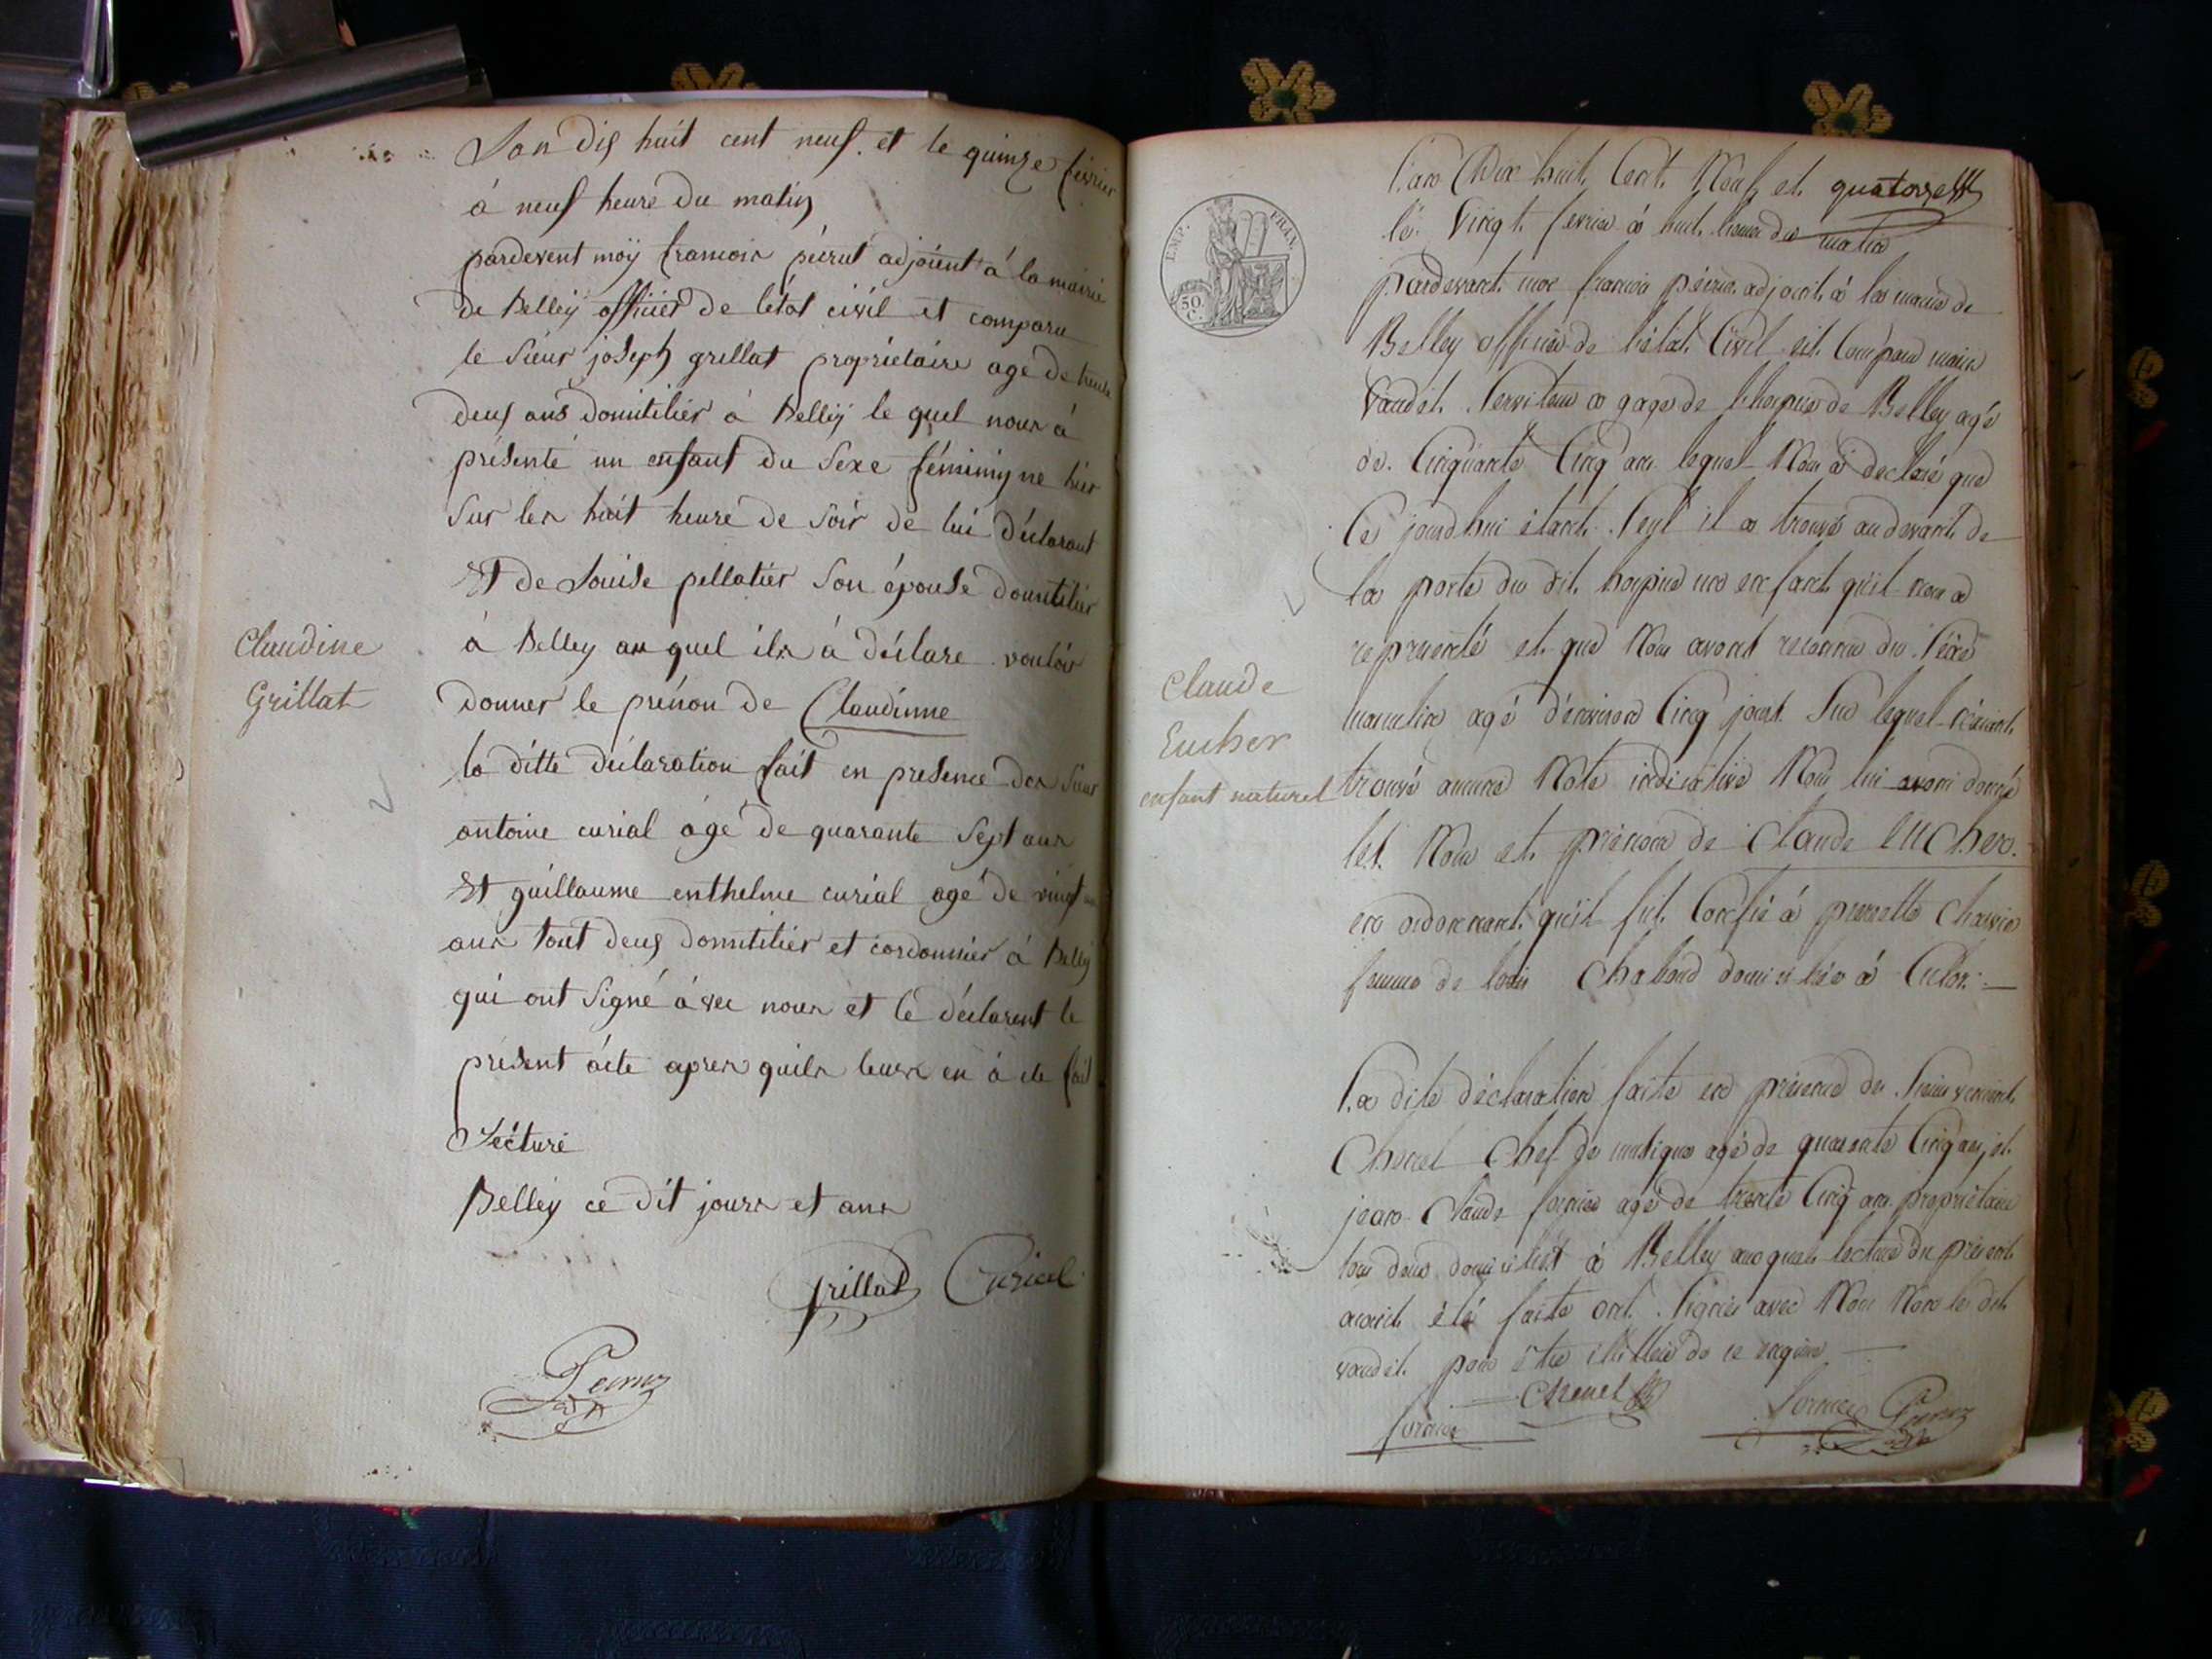 Lan dix huit cent neuf. et le quinze février
à neuf heure du matin
pardevent moÿ francoir péirut adjoient à la mairie
de Belleÿ officier de létat civil et comparu
le Sieur joseph grillat propriétaire age de trente
deux ans domitilier à Belleÿ le quel nour à
présenté un enfant du Sexe féminin ne hier
Sur ler huit heure de Soir de lui déclarant
Et de Louise pellatier Son épouse domitilier
à Belley au quel ila à déclare vouloir
donner le prénon de Claudinne
Claudine
Grillat
la ditte déclaration fait en presence der Sieur
antoine curial agé de quarante Sept anr
Et guillaume enthelme curial agé de vingt
anr tout deux domitilier et cordonnier à Belley
qui ont Signé àvec nour et le déclarent le
présent acte aprer quila leurr en à ete fait
Lecture
Belleÿ ce dit jourr et anr
Grillat Curial
Peiruz
EMP. FRAN.
50 C.
l'an Dix huit Cent Neuf et quatorze
le Vingt fevrier à huit heure du matin
pardevant moi francois péiruz adjoint à la mairie de
Belley officier de l'état Civil est Comparu
Vaudet Serviteur a gage de l'hospice de Belley agé
de Cinquante Cinq ans lequel Nous a déclaré que
Ce jourd'hui étant Seul il a trouvé au devant de
la porte du dit hospice un enfant qu'il nous a
représenté et que Nous avont reconnu du Sèxe
masculin agé d'environ Cinq jours Sur lequel n'ésiant
trouvé aucune Note indicative Nous lui avons donné
les Nom et prénom de Claude Eucher.
Claude
Eucher
enfant naturel
en ordonnant qu'il fut Confié à pernette
femme de louis Chaboud domicilié à Culoz
La dite déclaration faite en présence du Sieur vincent
Chenel Chef de musique agé de quarante Cinq ans, et
jean Claude fornier agé de trente Cinq ans propriétaire
tous deux domiciliés à Belley auxquels lecture du présent
ayant été faite ont Signés avec Nous Non le dit
vaudet pour être illitéré de ce requis
Chenel
fornier Peiruz